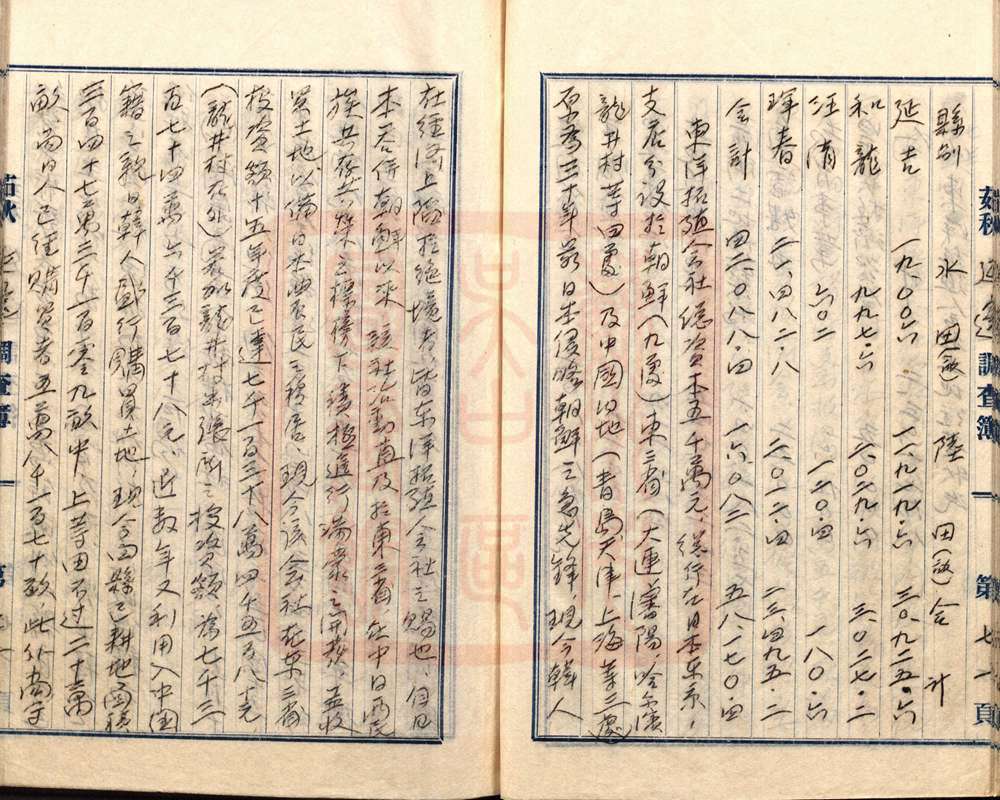 茹秋 延邊 調查簿 第七一頁
縣別 水田(畝) 陸田(畝) 合計
延吉 一九·〇〇六 一一·九一九·六 三〇·九二五·六
和龍 九九七·六 二·〇二九·六 三·〇二七·二
汪清 六〇二 一二〇·四 一八〇·六
琿春 二一·四八二·八 二·〇一二·四 二三·四九五·二
合計 四二·〇八八·四 一六·〇八二 五八·一七〇·四
東洋拓殖会社總資本五千萬元,總行在日本东京,
支店分設於朝鮮(九處)東三省(大連瀋陽哈尔濱
龍井村等四處)及中國内地(青島天津上海等三處)
原为三十年前日本侵略朝鮮之急先鋒,現今韓人
在經済上陷於绝境者,皆东洋拓殖会社之賜也,自日
本合併朝鮮以来 該社活動直及於東三省 在中日両民
族共存共荣之標榜下積極進行
買土地以满日本 農民之移居,現今該会社在东三省
投資額十五年度已達七千一百三十八萬四千五百八十元
(龍井村在外)若加龍井村出張所之投資額,為七千三
百七十四萬六千三百七十八元,近数年又利用入中國
籍之親日韓人 行購買土地 現今四縣已耕地面積
三百四十七萬三千一百零九畝中 上等田不过二十萬
畝,而日人已经購買者五萬八千一百七十畝,此外尚有
茹秋 調查簿 第